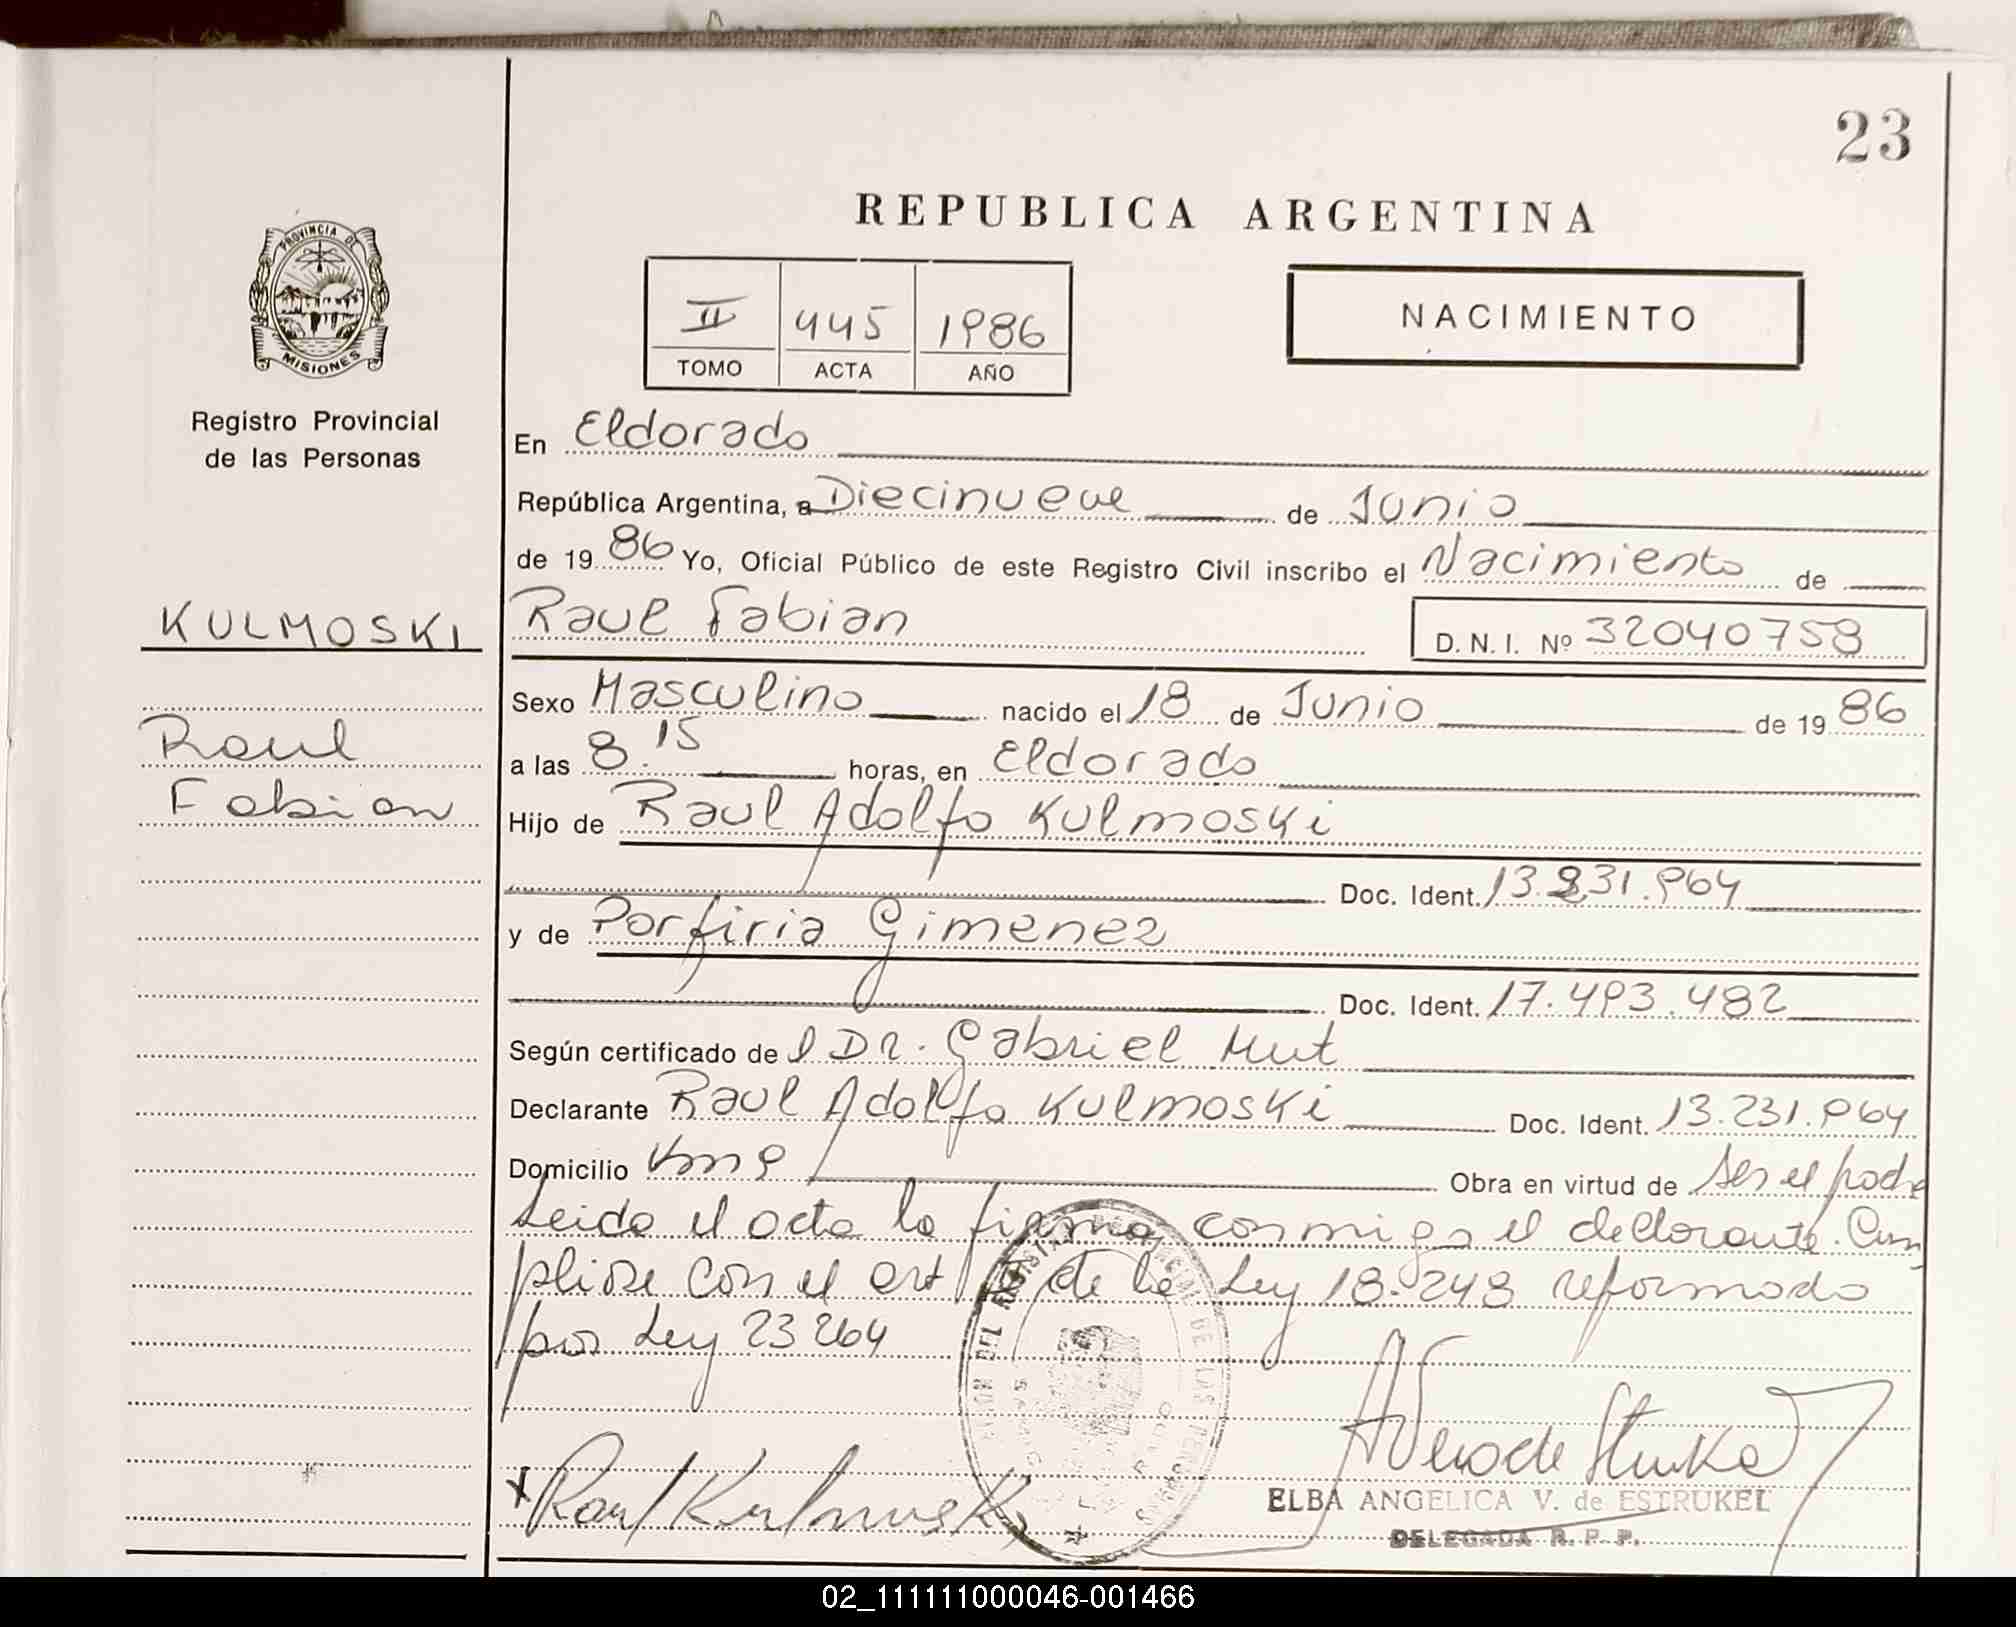 23
REPUBLICA ARGENTINA
PROVINCIA DE
MISIONES
II 445 1986
TOMO ACTA AÑO
NACIMIENTO
Registro Provincial
de las Personas
KULMOSKI
Raul
Fabian
En Eldorado
República Argentina, a Diecinueve de Junio
de 19 86 Yo, Oficial Público de este Registro Civil inscribo el Nacimiento de
Raul Fabian D. N. I. Nº 32040758
Sexo Masculino nacido el 18 de Junio de 19 86
a las 8.15 horas, en Eldorado
Hijo de Raul Adolfo Kulmoski
Doc. Ident. 13.231.964
y de Porfiria Gimenez
Doc. Ident. 17.493.482
Según certificado de l Dr. Gabriel Mut
Declarante Raul Adolfo Kulmoski Doc. Ident. 13.231.964
Domicilio Km 9 Obra en virtud de ser el padre
Leida el acta la firma conmigo el declarante. Cum
pliose con el art de la Ley 18.248 reformado
por Ley 23264
Raul Kulmoski
ELBA ANGELICA V. de ESTRUKEL
DELEGADA R. P. P.
02_111111000046-001466